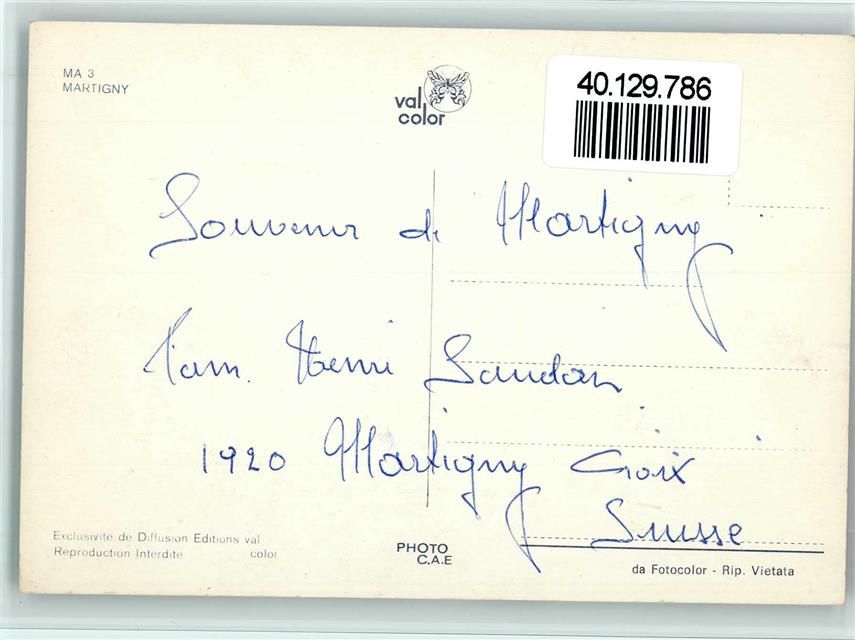 MA 3
MARTIGNY
val
color
40.129.786
Souvenir de Martigny
Fam. Henri Saudan
1920 Martigny Croix
Suisse
Exclusivite de Diffusion Editions val
Reproduction Interdite color
PHOTO
C.A.E
da Fotocolor - Rip. Vietata